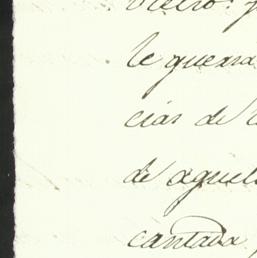 le guerra
cias de
de aquel
cantada